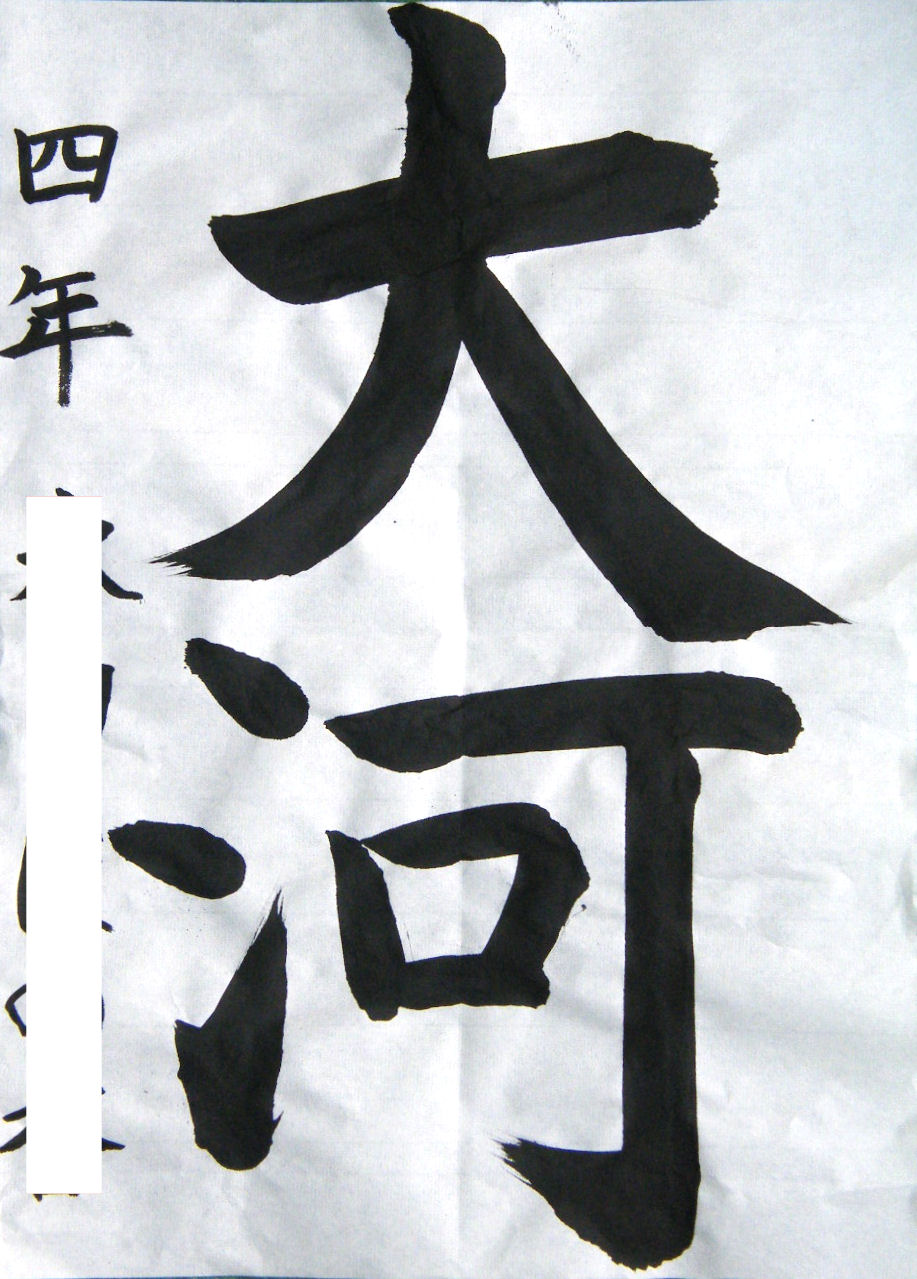 大河
四年